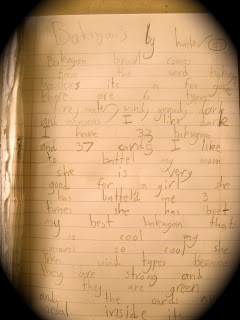 Bakugan's by hunter
Bakugan brawl comes
from the word baku
its a fun game
there are 6 types
fire, water, wind, ground, dark
and I like dark
I have 33 bakugan
and 37 cards I like
to battel my mom
she is very
good for a girl she
has batteld me 3
times she has beet
my best bakugan that
is so cool my
moms so cool she
likes wind types because
they are strong and
they are green
and the cards a
medal inside it